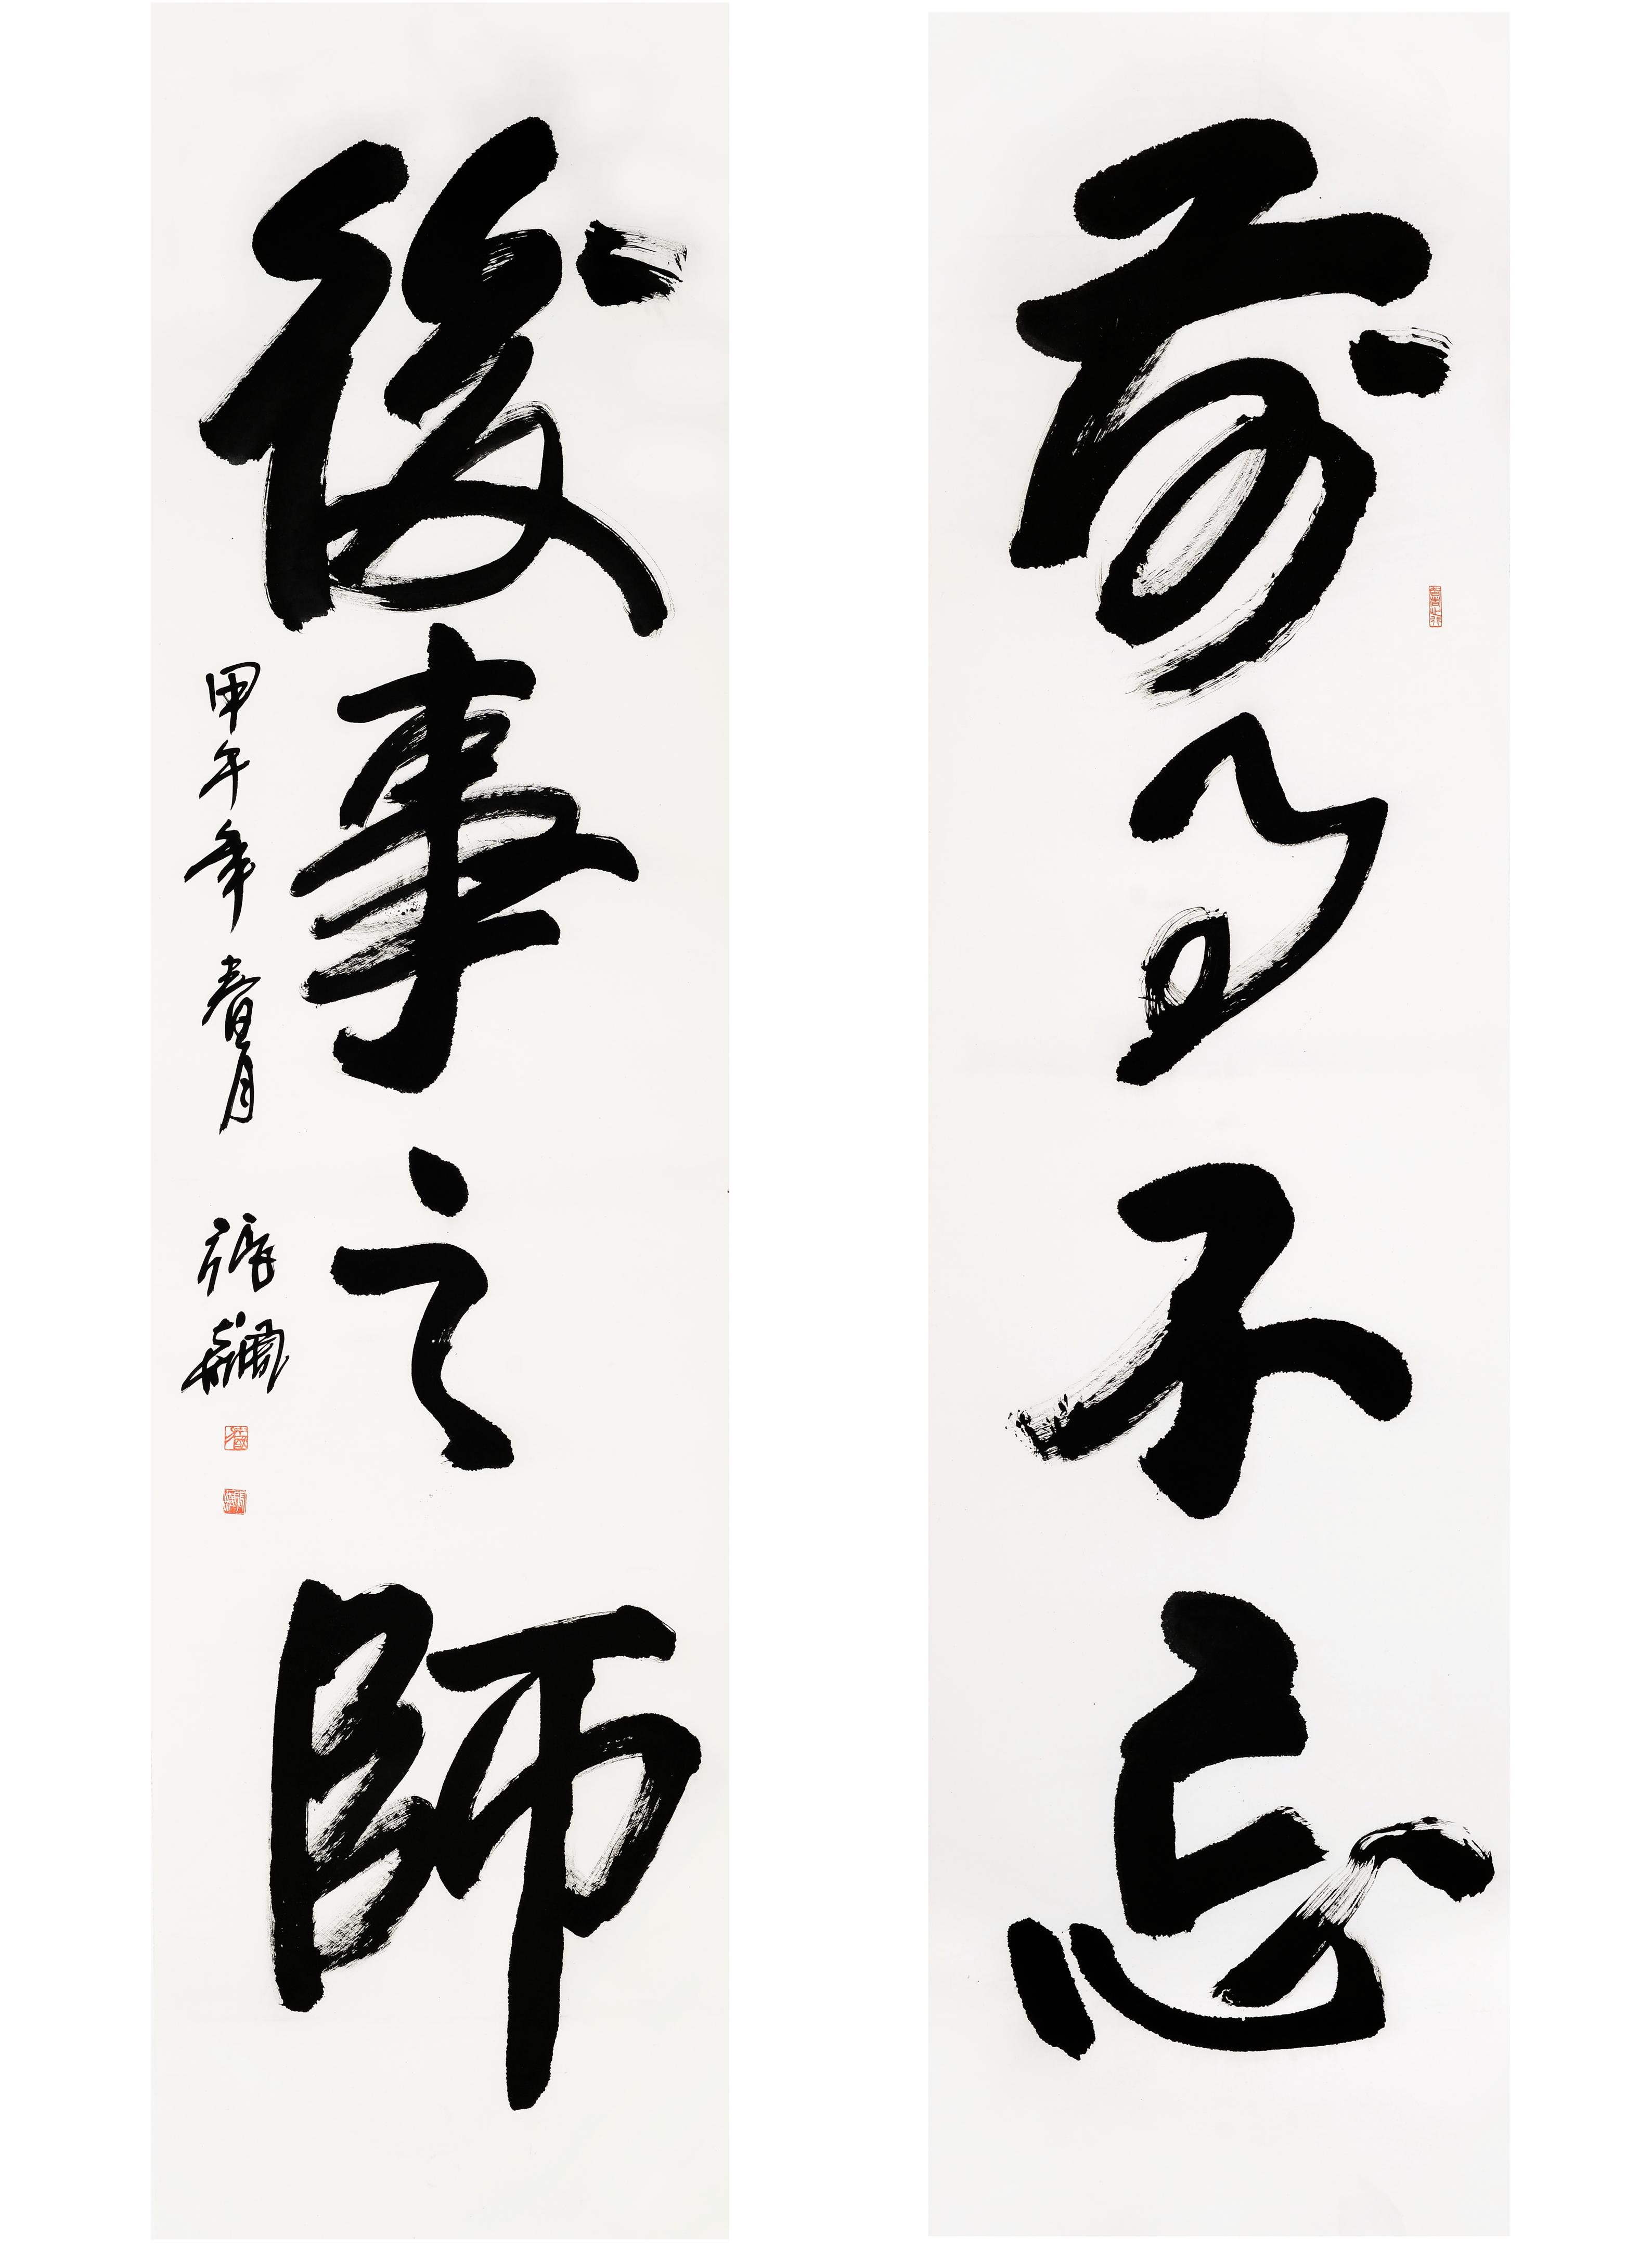 前事不忘
後事之師
甲午年春月
張繼